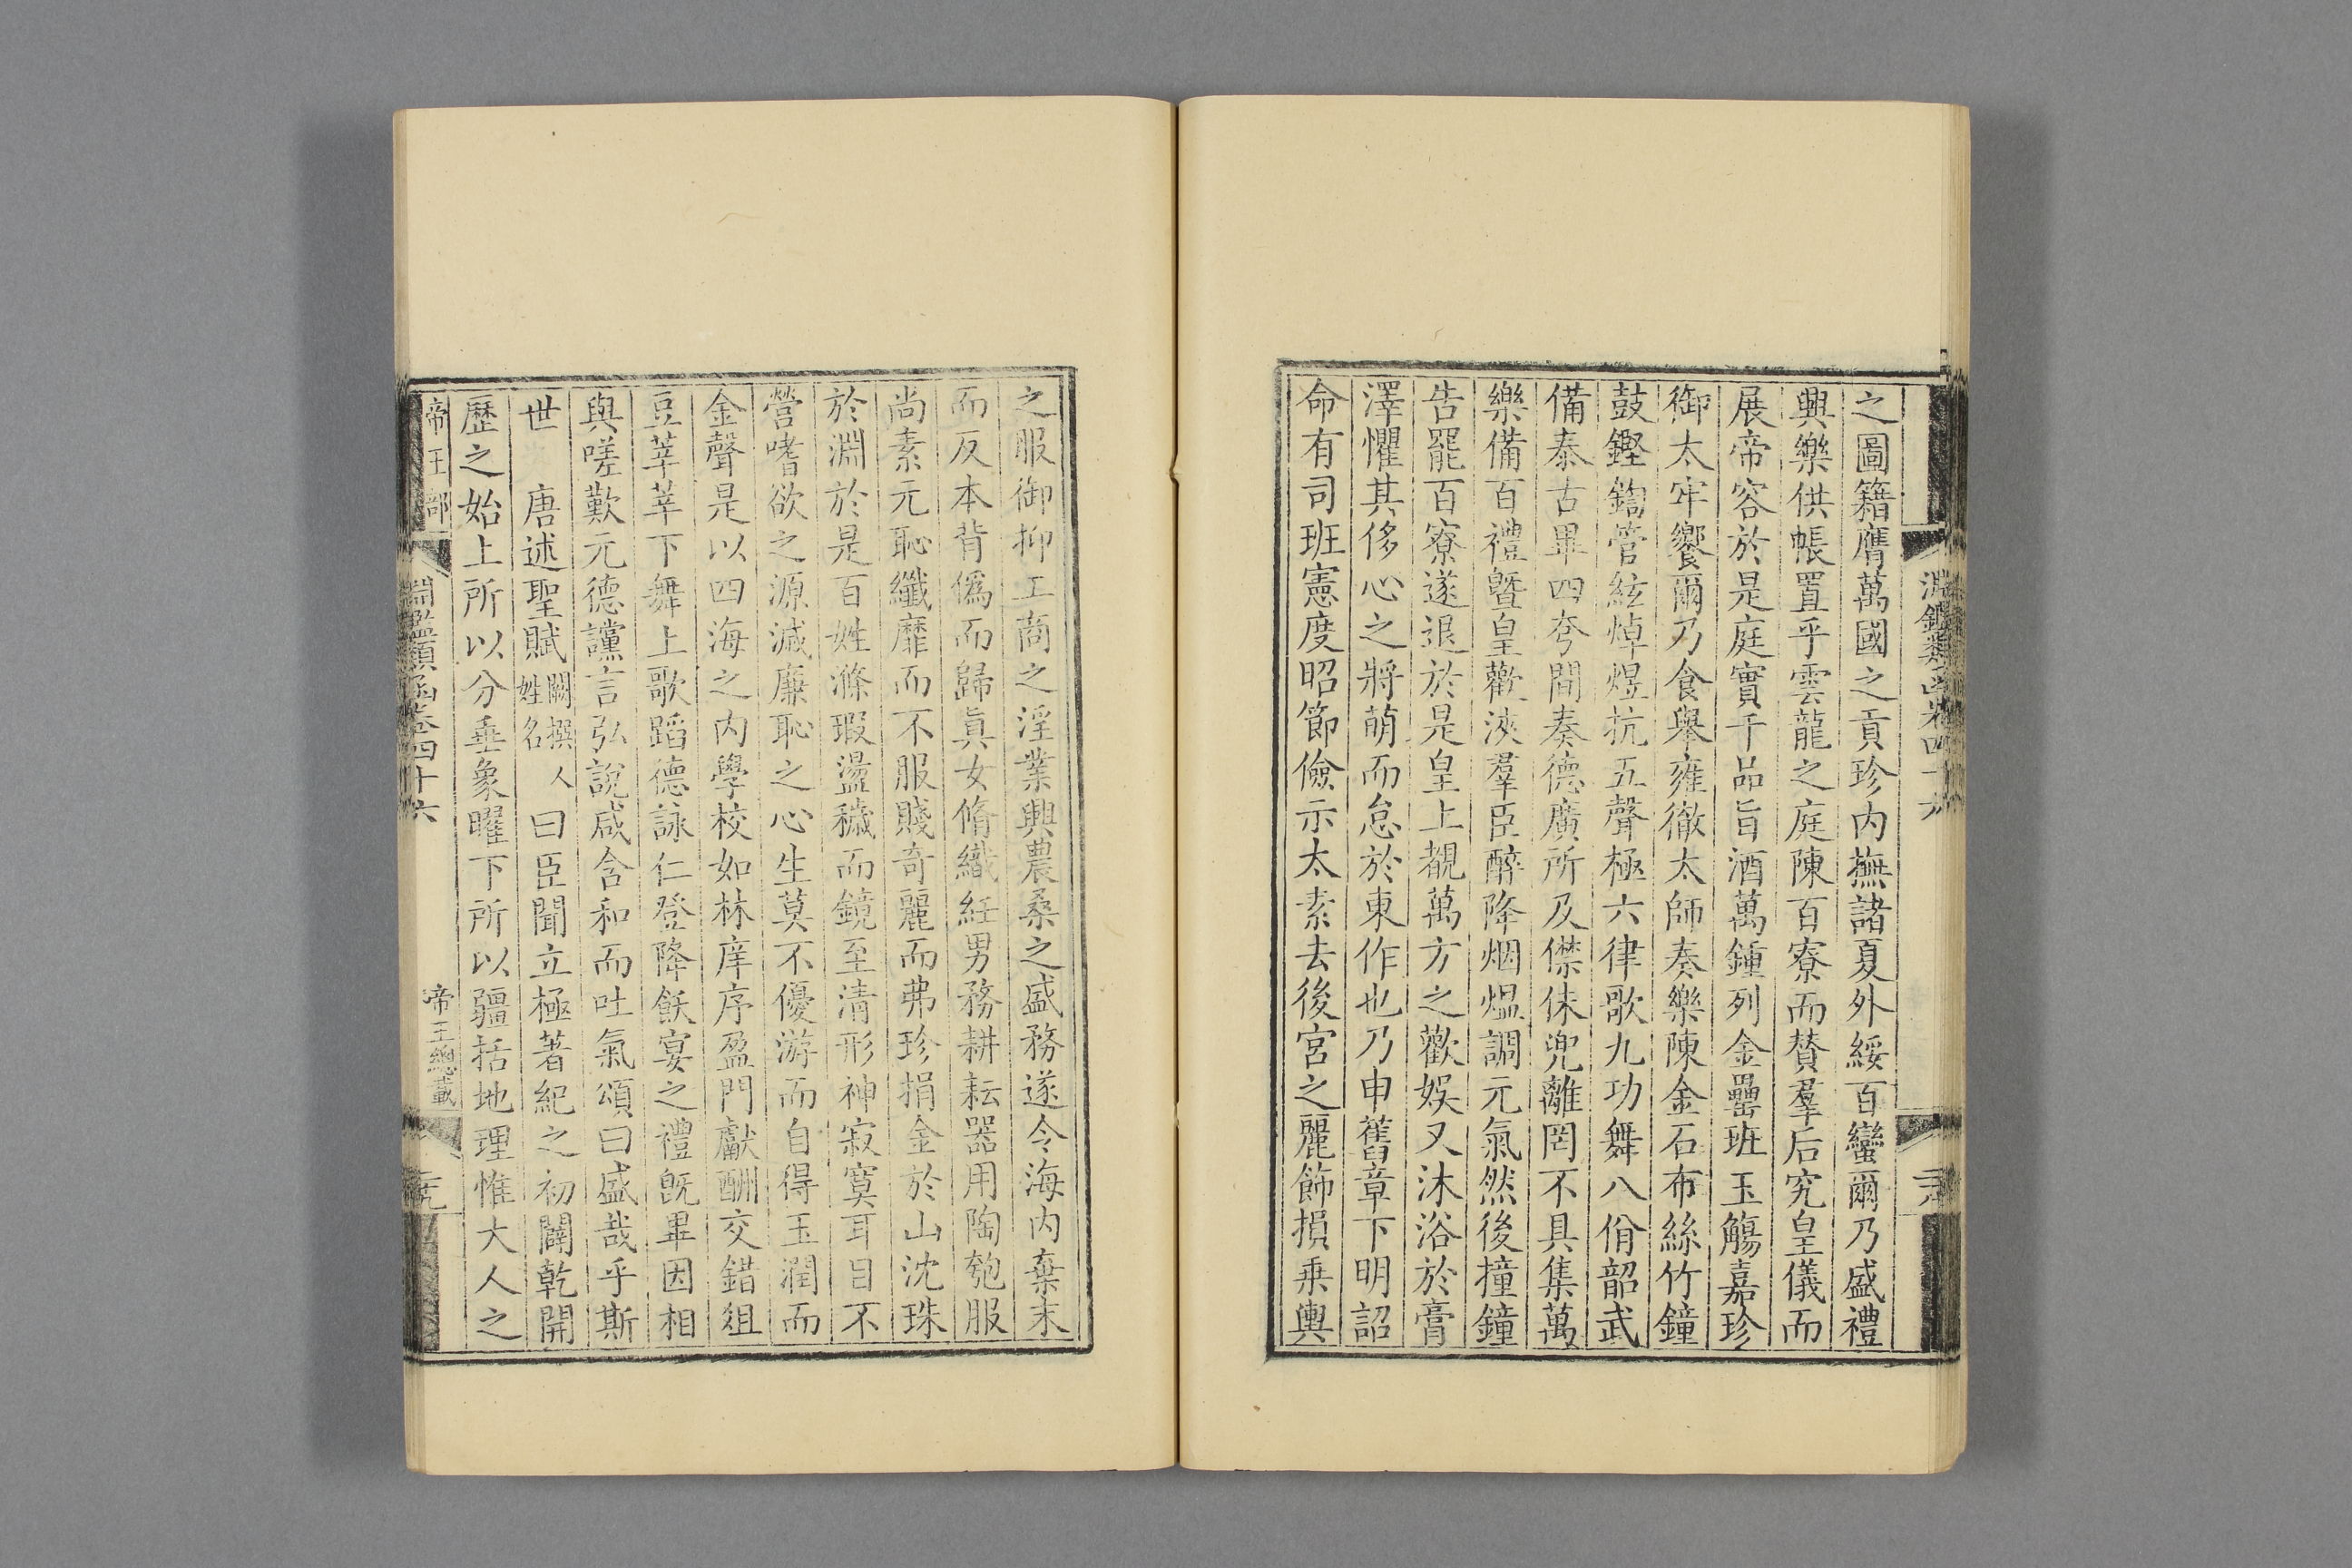 之圖籍膺萬國之貢珍内撫諸夏外綏百蠻爾乃盛禮
興樂供帳置乎雲龍之庭陳百寮而贊羣后究皇儀而
展帝容於是庭實千品旨酒萬鍾列金罍班玉觴嘉珍
御太牢饗爾乃食舉雍徹太師奏樂陳金石布絲竹鐘
鼓鏗鍧管絃焯煜抗五聲極六律歌九功舞八佾韶武
備泰古畢四夸間奏德廣所及僸佅兜離罔不具集萬
樂備百禮曁皇歡浹羣臣醉降烟熅調元氣然後撞鐘
告罷百寮遂退於是皇上覩萬方之歡娛又沐浴於膏
澤懼其侈心之將萌而怠於東作也乃申舊章下明詔
命有司班憲度昭節儉示太素去後宮之麗飾損乗輿
之服御抑工商之淫業興農桑之盛務遂令海内棄末
而反本背僞而歸眞女脩織紝男務耕耘器用陶匏服
尚素元恥纖靡而不服賤奇麗而弗珍捐金於山沈珠
於淵於是百姓滌瑕盪穢而鏡至清形神寂寞耳目不
營嗜欲之源滅廉恥之心生莫不優游而自得玉潤而
金聲是以四海之内學校如林庠序盈門獻酬交錯俎
豆莘莘下舞上歌蹈德詠仁登降飫宴之禮旣畢因相
與嗟歎元德讜言弘說咸含和而吐氣頌曰盛哉乎斯
世　唐述聖賦闕撰人姓名曰臣聞立極著紀之初闢乾開
歷之始上所以分垂象曜下所以疆括地理惟大人之
帝王部　淵鑑類函卷四十六　帝王總載